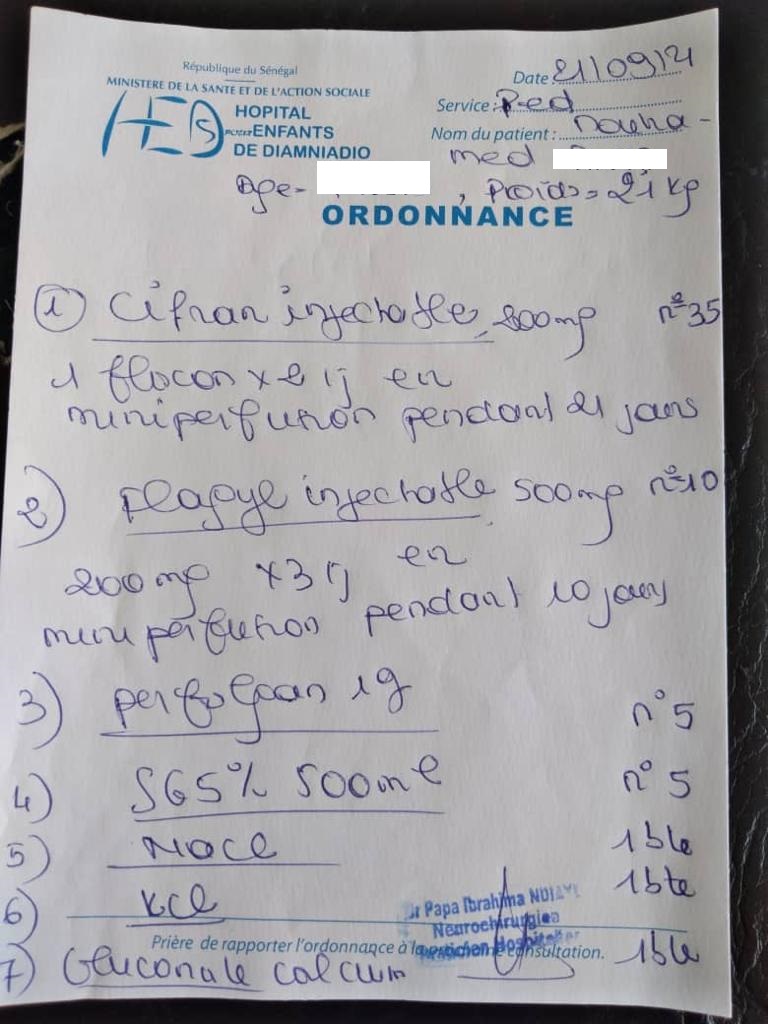 République du Sénégal
MINISTERE DE LA SANTE ET DE L'ACTION SOCIALE
HED(S)
HOPITAL
POUR ENFANTS
DE DIAMNIADIO
Date : 21/09/21
Service : Ped
Nom du patient : Mouha-
med
Age= , Poids= 21 kg
ORDONNANCE
1) Cifran injectable, 200mg n=°35
1 flacon x 2 /j en
miniperfusion pendant 21 jours
2) Flagyl injectable 500mg n=°10
200mg x3 /j en
mini perfusion pendant 10 jours
3) perfalgan 1g n° 5
4) SG5% 500ml n° 5
5) NaCl 1bte
6) KCl 1bte
Dr Papa Ibrahima NDIAYE
Neurochirurgien
Prière de rapporter l'ordonnance à la prochaine consultation.
7) Gluconate calcium 1bte